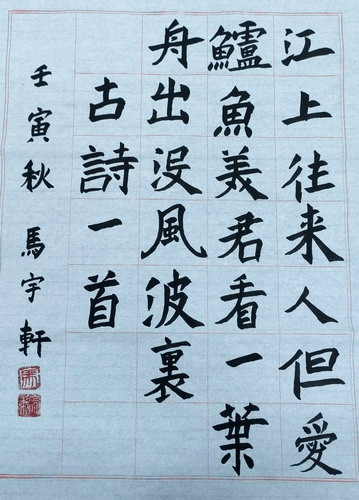 江上往来人但愛
鱸魚美君看一葉
舟出没風波裏
古詩一首
壬寅秋馬宇軒